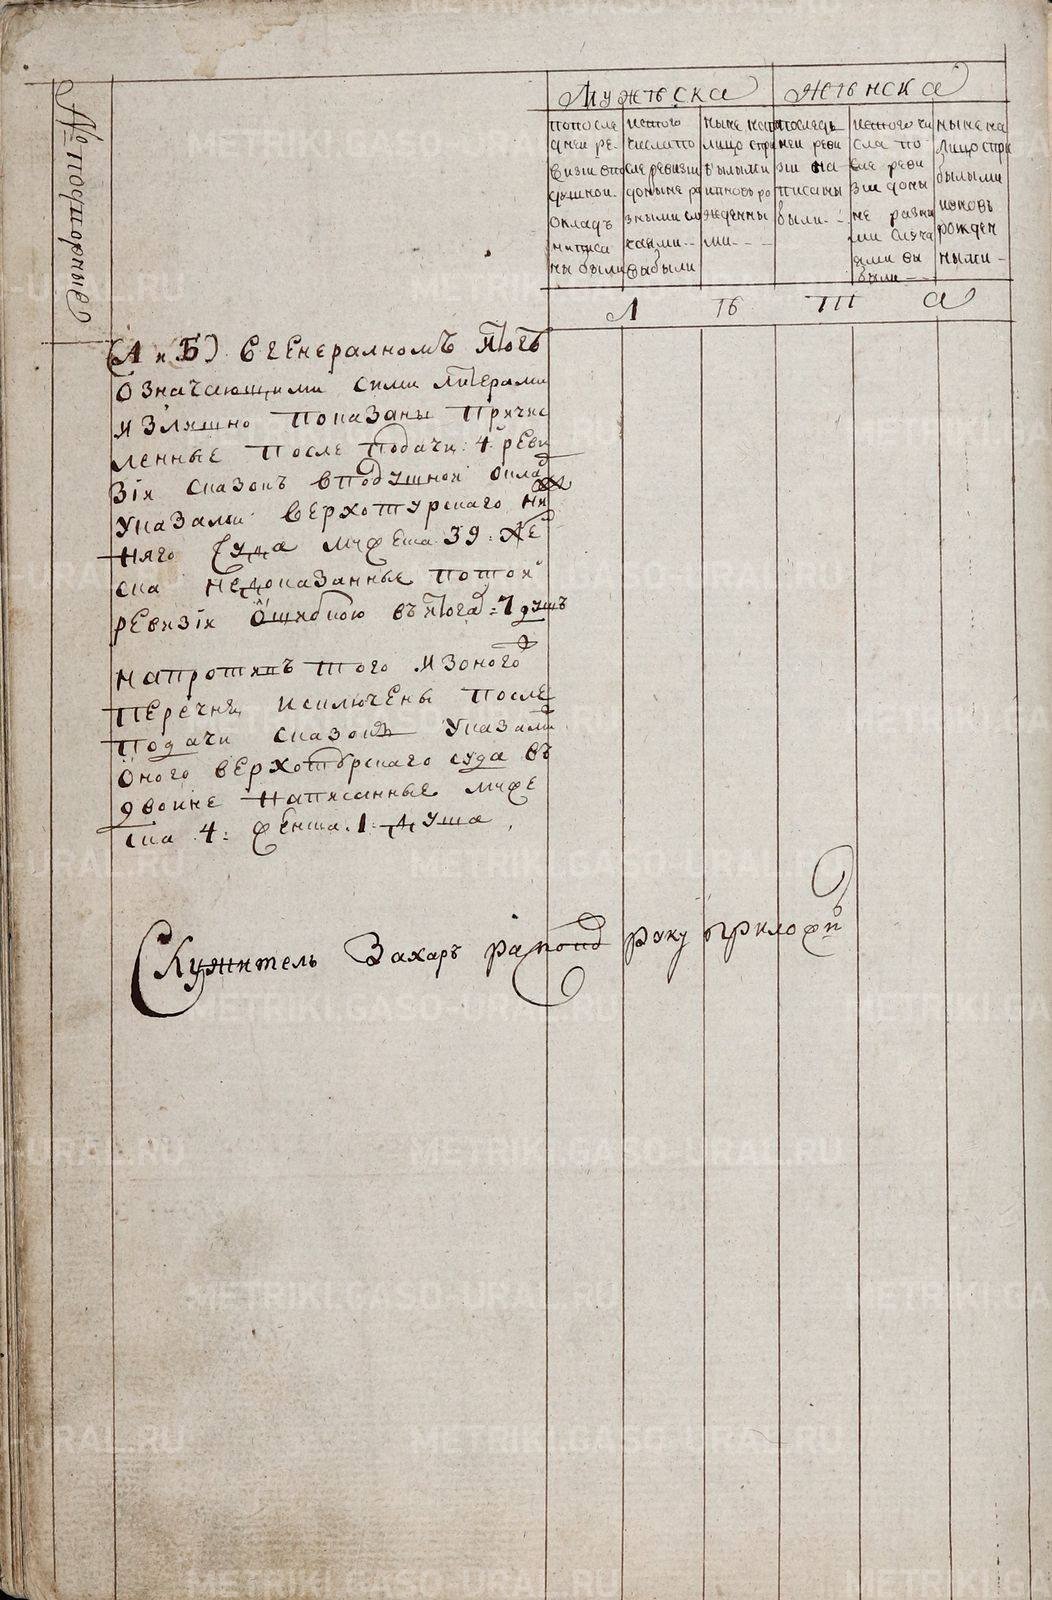 № подворные
Мужеска Женска
по после
дней ре-
визии в по
душной
окладъ
написа
ны были
исного
числа по
сле ревизии
доныне ра
зными слу
чаями
выбыли
ныне на
лицо спри
былыми
и вновь ро
жденны
ми
последъ
ней реви
зии на
писаны
были
исного чи
сла по
сле реви
зии доны
не разны
ми случа
ями вы
были
ныне на
лицо спри
былыми
ивновь
рожден
ными
А Б Ш А
(А и Б) вгенералномъ итоге
Означающими сими литерами
излишно показаны причис
ленные после подачи 4 реви
зiи сказокъ вподушной окла
указами верхотурскаго ни
жняго суда мужеска 39 же
ска недоказанные потой
ревизiи Ошибкою въ итога 7 душъ
напротивъ того изоного
перечня исключены после
подачи сказокъ указами
Оного верхотурскаго суда въ
двоине написанные муже
ска 4 женска 1 душа
Служитель Захаръ руку приложилъ
METRIKI.GASO-URAL.RU